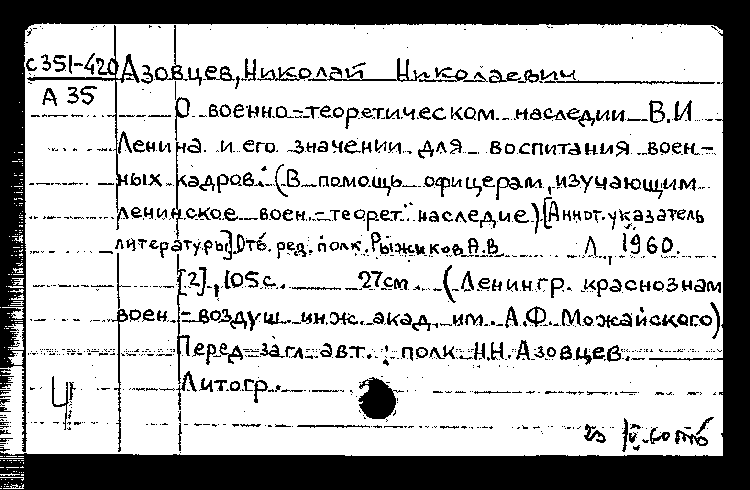 с351-420 Азовцев, Николай Николаевич
А 35
О военно-теоретическом наследии В.И
Ленина и его значении для воспитания воен-
ных кадров. (В помощь офицерам, изучающим
ленинское воен.-теорет. наследие) [Аннот. указатель
литературы]. Отв. ред. полк. Рыжиков А.В
Л, 1960.
[2], 105с. 27см. (Ленингр. краснознам
воен-воздуш инж. акад. им. А.Ф. Можайского)
Перед загл. авт.: полк Н.Н. Азовцев.
Литогр.
Ч